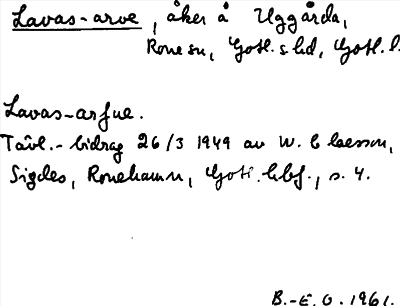 Lavas-arve, åker å Uggårda,
Rone sn, Gotl. s hd, Gotl. l.
Lavas-arfue.
Tävl.-bidrag 26/3 1949 av W. Claesson,
Sigdes, Ronehamn, Gotl.
s. 4.
B.-E. O. 1961.